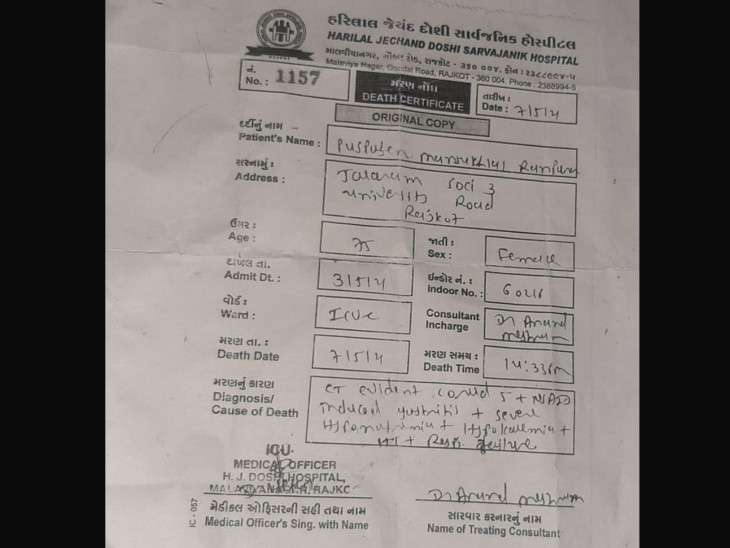 હરિલાલ જેચંદ દોશી સાર્વજનિક હોસ્પીટલ
HARILAL JECHAND DOSHI SARVAJANIK HOSPITAL
માલવીયાનગર, ગોંડલ રોડ, રાજકોટ - ૩૬૦ ૦૦૪. ફોન : ૨૩૮૮૯૯૪-૫
Malaviya Nagar, Gondal Road, RAJKOT - 360 004. Phone : 2388994-5
નં.
No. : 1157
મરણ નોંધ
DEATH CERTIFICATE
ORIGINAL COPY
તારીખ :
Date : 7/5/21
દર્દીનું નામ
Patient's Name : Puspaben mansukhlal
સરનામું :
Address : Jalaram Soci 3
University Road
Rajkot
ઉંમર :
Age : 75
જાતી :
Sex : Female
દાખલ તા.
Admit Dt. : 3/5/21
ઈન્ડોર નં. :
Indoor No. :
વોર્ડ :
Ward :
Consultant
Incharge Dr Anand
મરણ તા. :
Death Date 7/5/21
મરણ સમય :
Death Time
મરણનું કારણ
Diagnosis/
Cause of Death
CT evident covid + NSAID
induced gastritis + severe
Hyponatrimia + Hypokalemia +
+ Resp. failure
ICU.
MEDICAL OFFICER
H. J. DOSHI HOSPITAL,
MALAVIYANAGAR, RAJKO
મેડીકલ ઓફિસરની સહી તથા નામ
Medical Officer's Sing. with Name
IC - 057
Dr Anand
સારવાર કરનારનું નામ
Name of Treating Consultant